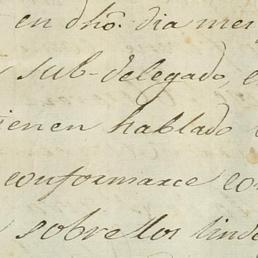 en dho. dia me
sub-delegado, e
ienen hablado
conformarce co
sobre los lind